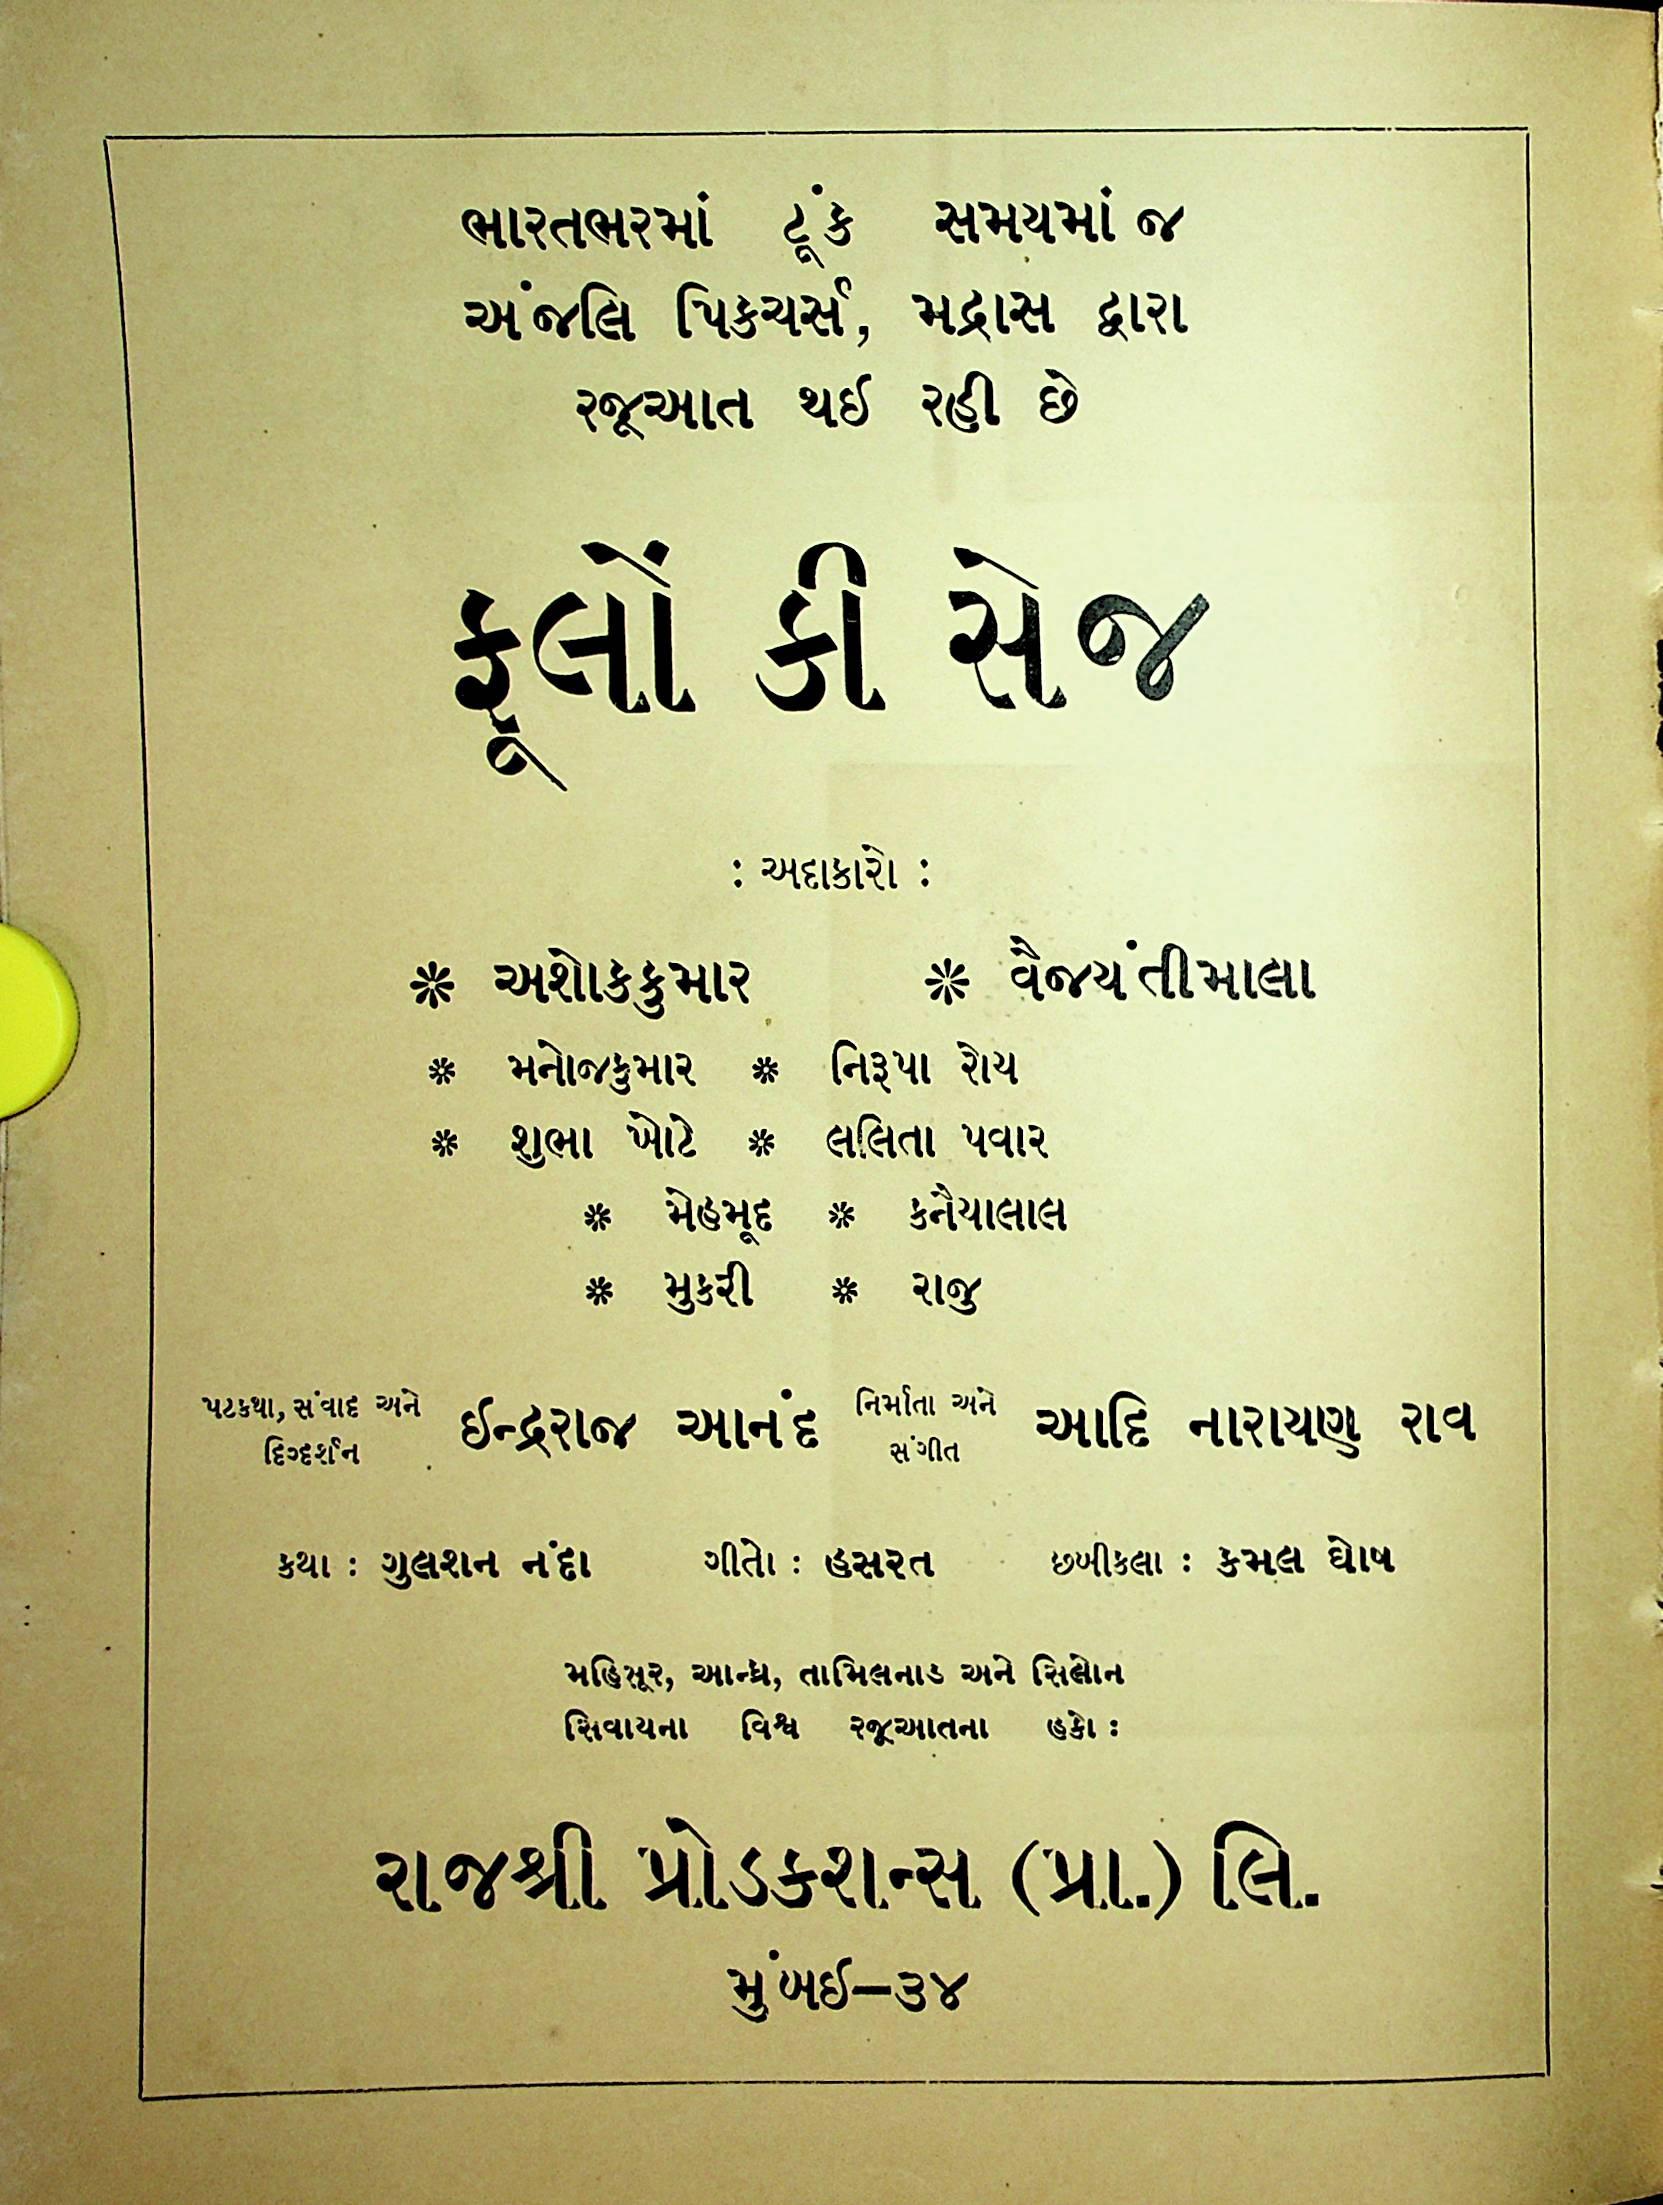 ભારતભરમાં ટૂંક સમયમાં જ
અંજલિ પિકચર્સ, મદ્રાસ દ્વારા
રજૂઆત થઈ રહી છે
ફૂલોં કી સેજ
: અદાકારો :
* અશોકકુમાર * વૈજયંતીમાલા
* મનોજકુમાર * નિરૂપા રોય
* શુભા ખોટે * લલિતા પવાર
* મેહમૂદ * કનૈયાલાલ
* મુકરી * રાજુ
પટકથા, સંવાદ અને દિગ્દર્શન ઈન્દ્રરાજ આનંદ નિર્માતા અને સંગીત આદિ નારાયણ રાવ
કથા : ગુલશન નંદા ગીતો : હસરત છબીકલા : કમલ ઘોષ
મહિસૂર, આન્ધ્ર, તામિલનાડ અને સિલોન
સિવાયના વિશ્વ રજૂઆતના હકો :
રાજશ્રી પ્રોડકશન્સ (પ્રા.) લિ.
મુંબઈ–૩૪